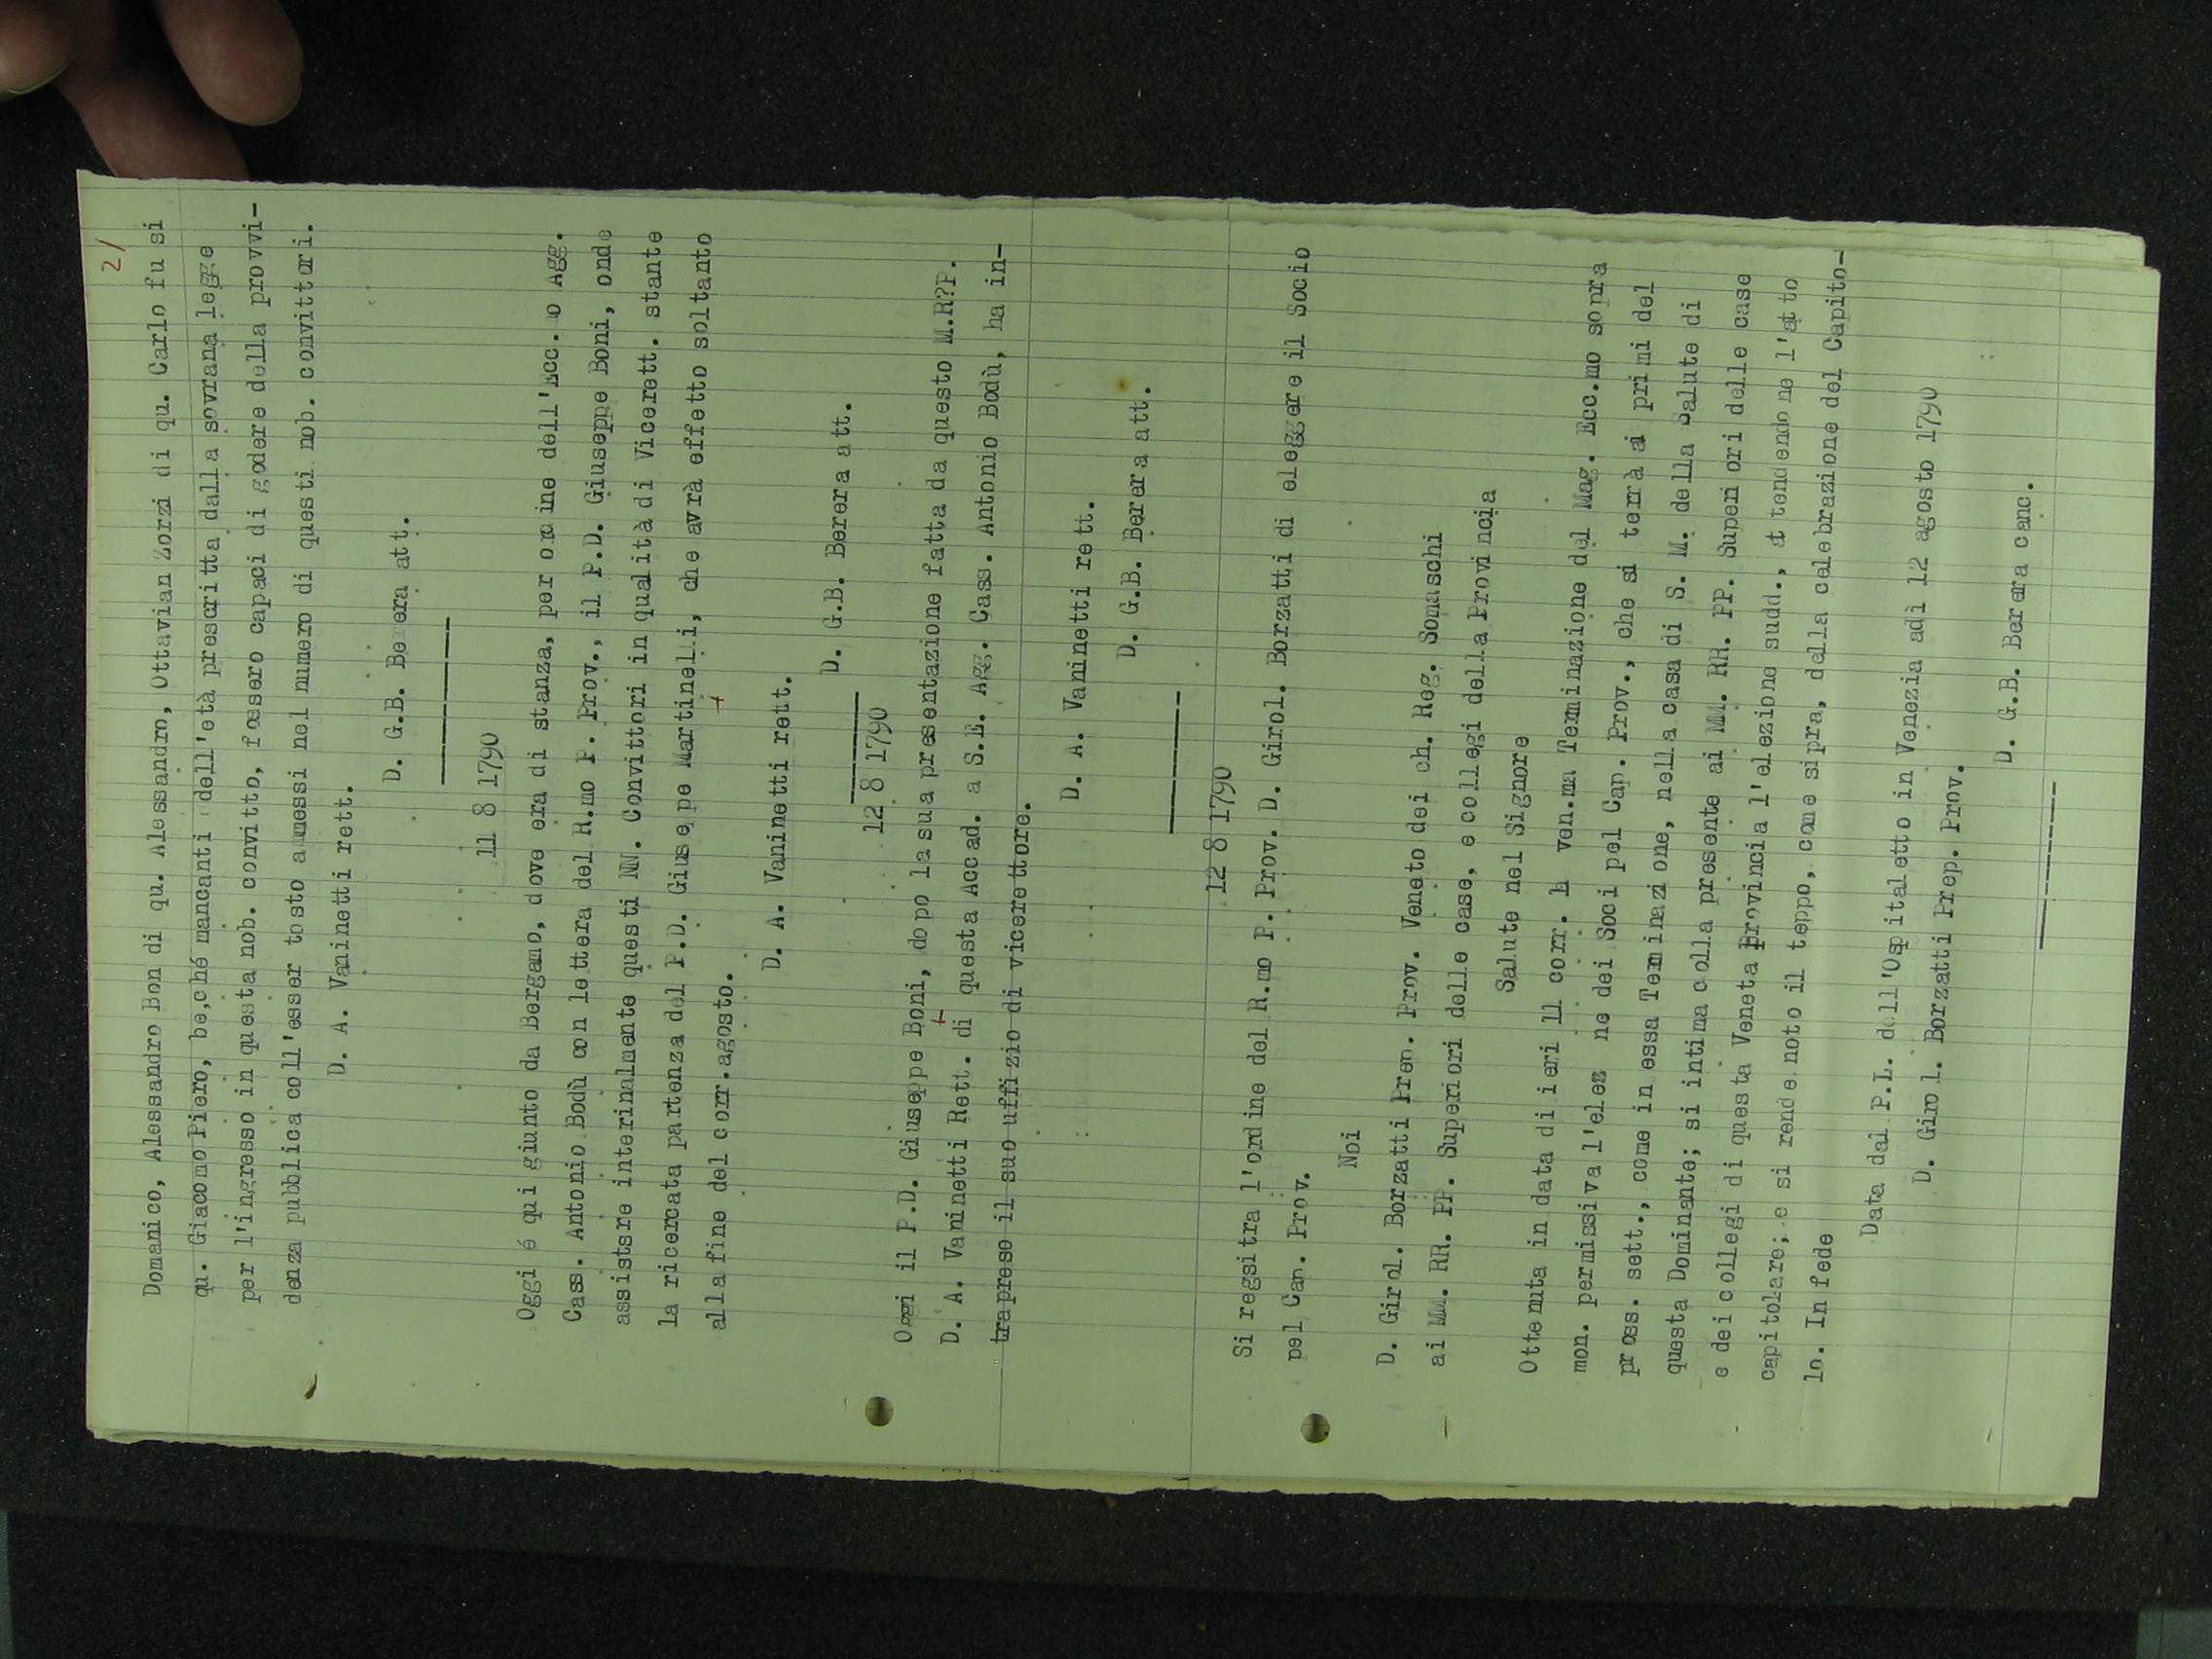 2/
Domanico, Alessandro Bon di qu. Alessandro, Ottavian Zorzi di qu. Carlo fu si
qu. Giacomo Piero, be,ché mancanti dell'età prescritta dalla sovrana legge
per l'ingresso in questa nob. convitto, fossero capaci di godere della provvi-
denza pubblica coll'esser tosto amessi nel numero di questi nob. convittori.
D. A. Vaninetti rett.
D. G.B. Berera att.
11 8 1790
Oggi é qui giunto da Bergamo, dove era di stanza, per ordine dell'Ecc.mo Agg.
Cass. Antonio Bodù con lettera del R.mo P. Prov., il P.D. Giuseppe Boni, onde
assistsre interinalmente questi NN. Convittori in qualità di Vicerett. stante
la ricercata partenza del P.D. Giuseppe Martinelli, che avrà effetto soltanto
alla fine del corr.agosto.
D. A. Vaninetti rett.
D. G.B. Berera att.
12 8 1790
Oggi il P.D. Giuseppe Boni, dopo la sua presentazione fatta da questo M.R?P.
D. A. Vaninetti Rett. di questa Accad. a S.E. Agg. Cass. Antonio Bodù, ha in-
trapreso il suo uffizio di vicerettore.
D. A. Vaninetti rett.
D. G.B. Berera att.
12 8 1790
Si regsitra l'ordine del R.mo P. Prov. D. Girol. Borzatti di eleggere il Socio
pel Cap. Prov.
Noi
D. Girol. Borzatti Prep. Prov. Veneto dei ch. Reg. Somaschi
ai MM. RR. PP. Superiori delle case, e collegi della Provincia
Salute nel Signore
Ottenuta in data di ieri 11 corr. la ven.ma Terminazione del Mag. Ecc.mo sopra
mon. permissiva l'elez ne dei Soci pel Cap. Prov., che si terrà ai primi del
pross. sett., come in essa Terminazione, nella casa di S. M. della Salute di
questa Dominante; si intima colla presente ai MM. RR. PP. Superiori delle case
e dei collegi di questa Veneta Provincia l'elezione sudd., attendendone l'atto
capitolare; e si rende noto il teppo, come sipra, della celebrazione del Capito-
lo. In fede
Data dal P.L. dell'Ospitaletto in Venezia adì 12 agosto 1790
D. Girol. Borzatti Prep. Prov.
D. G.B. Berera canc.